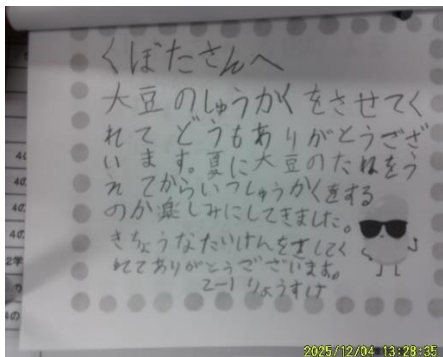 くぼたさんへ
大豆のしゅうかくをさせてく
れてどうもありがとうござ
います。夏に大豆のたねをう
えてからいつしゅうかくをする
のか楽しみにしてきました。
きちょうなたいけんをさしてく
れてありがとうございます。
2-1 りょうすけ
2025/12/04 13:28:35